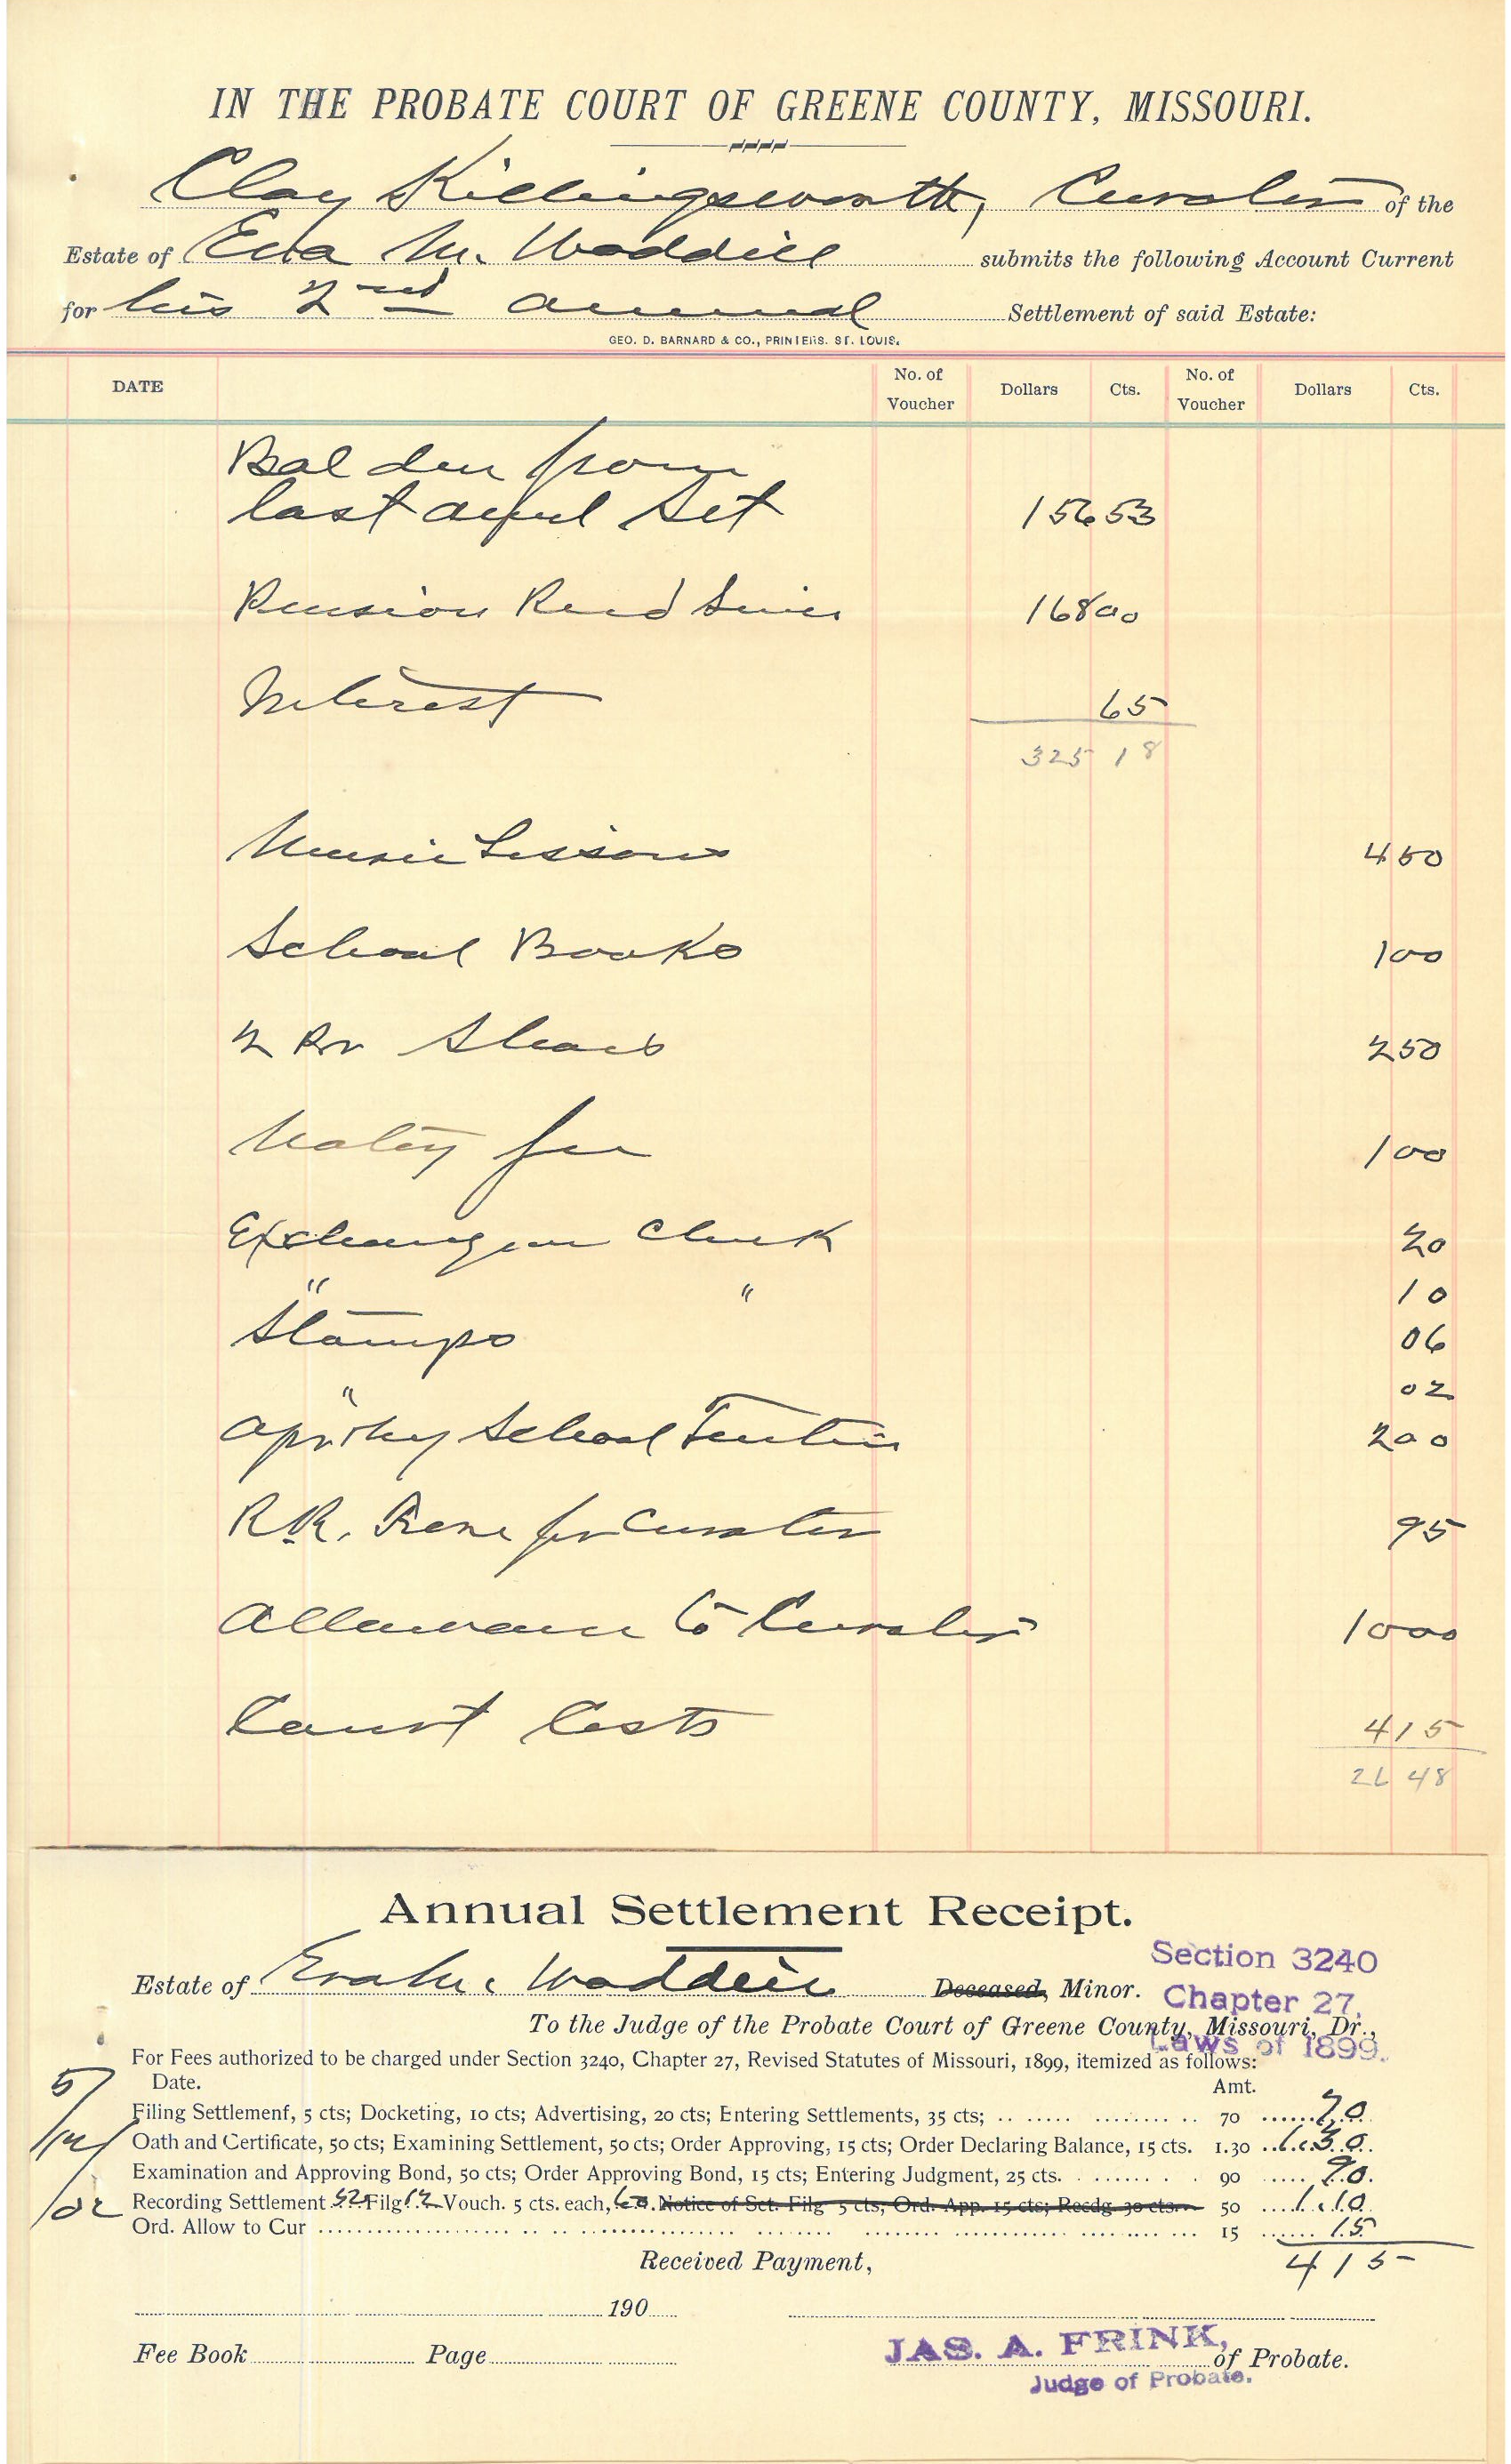 IN THE PROBATE COURT OF GREENE COUNTY, MISSOURI.
Clay Killingsworth, Curator of the
Estate of Eva M. Waddill submits the following Account Current
for his 2nd annual Settlement of said Estate:
GEO. D. BARNARD & CO., PRINTERS. ST. LOUIS.
DATE No. of Voucher Dollars Cts. No. of Voucher Dollars Cts.
Bal due from
last Set 156 53
Pension Recd Since 168 00
Interest 65
325 18
Music Lessons 4 50
School Books 1 00
2 Pr Shoes 2 50
Notary fee 1 00
Exchange on Check 20
" " 10
Stamps 06
" 02
School Tuition 2 00
R.R. Fare for Curator 95
Allowance to Curator 10 00
Court Costs 4 15
26 48
Annual Settlement Receipt.
Estate of Eva M. Waddill Deceased, Minor.
Section 3240
Chapter 27,
Laws of 1899.
To the Judge of the Probate Court of Greene County, Missouri, Dr.,
For Fees authorized to be charged under Section 3240, Chapter 27, Revised Statutes of Missouri, 1899, itemized as follows:
Date. Amt.
5/12/02
Filing Settlement, 5 cts; Docketing, 10 cts; Advertising, 20 cts; Entering Settlements, 35 cts; 70 70
Oath and Certificate, 50 cts; Examining Settlement, 50 cts; Order Approving, 15 cts; Order Declaring Balance, 15 cts. 1.30 1.30
Examination and Approving Bond, 50 cts; Order Approving Bond, 15 cts; Entering Judgment, 25 cts. 90 90
Recording Settlement Filg 12 Vouch. 5 cts. each, 60. Notice of Set. Filg 5 cts, Ord. App. 15 cts; Recdg. 30 cts. 50 1.10
Ord. Allow to Cur 15 15
4 15
Received Payment,
190
Fee Book Page
JAS. A. FRINK,
of Probate.
Judge of Probate.